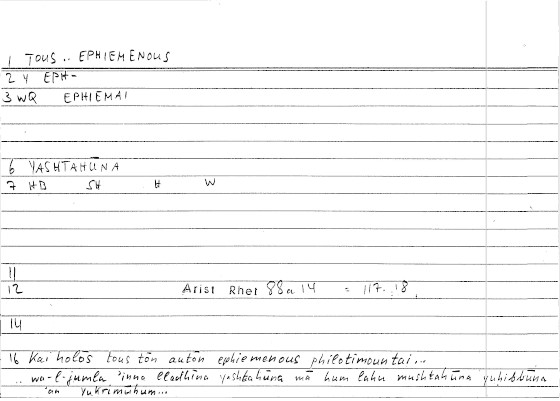 1 TOUS .. EPHIEMENOUS
2 Y EPH-
3 WQ EPHIEMAI
6 YASHTAHŪNA
7 HD SH H W
11
12 Arist Rhet 88a14 = 117.18
14
16 Kai holōs tous tōn autōn ephiemenous philotimountai...
.. wa-l-jumla 'inna lladhīna yashtahūna mā hum lahu mushtahūna yuḥibbūna
'an yukrimūhum...